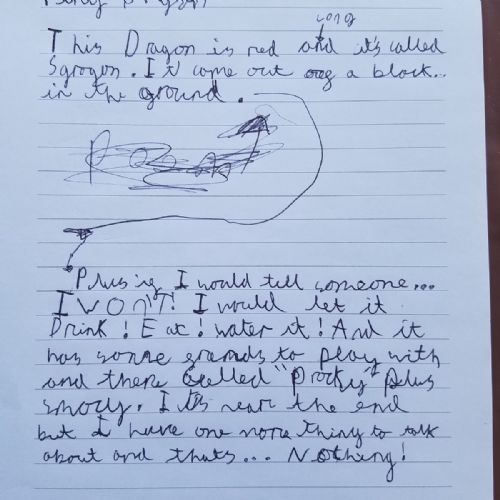 long
This Dragon is red and it's called
Sgrogon. It come out a black..
in the ground.
Plus ig I would tell someone...
I WON'T! I would let it
Drink! Eat! water it! And it
has some grends to play with
and there Celled "Procky" plus
smody. It's near the end
but I have one more thing to talk
about and thats... Nothing!